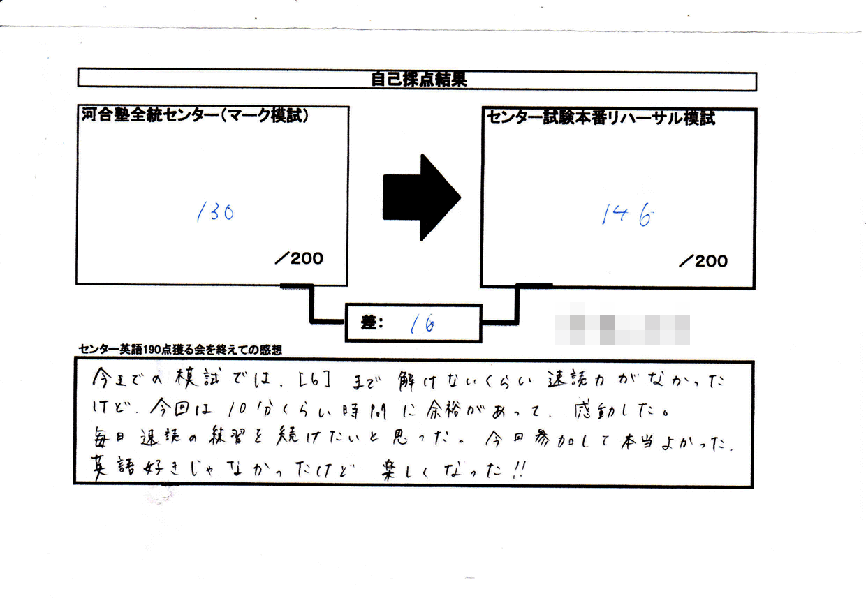 自己採点結果
河合塾全統センター(マーク模試)
130
/200
センター試験本番リハーサル模試
146
/200
差: 16
センター英語190点獲る会を終えての感想
今までの模試では、[6] まで解けないくらい速読力がなかった
けど、今回は10分くらい時間に余裕があって、感動した。
毎日速読の練習を続けたいと思った。今回参加して本当よかった。
英語好きじゃなかったけど 楽しくなった!!